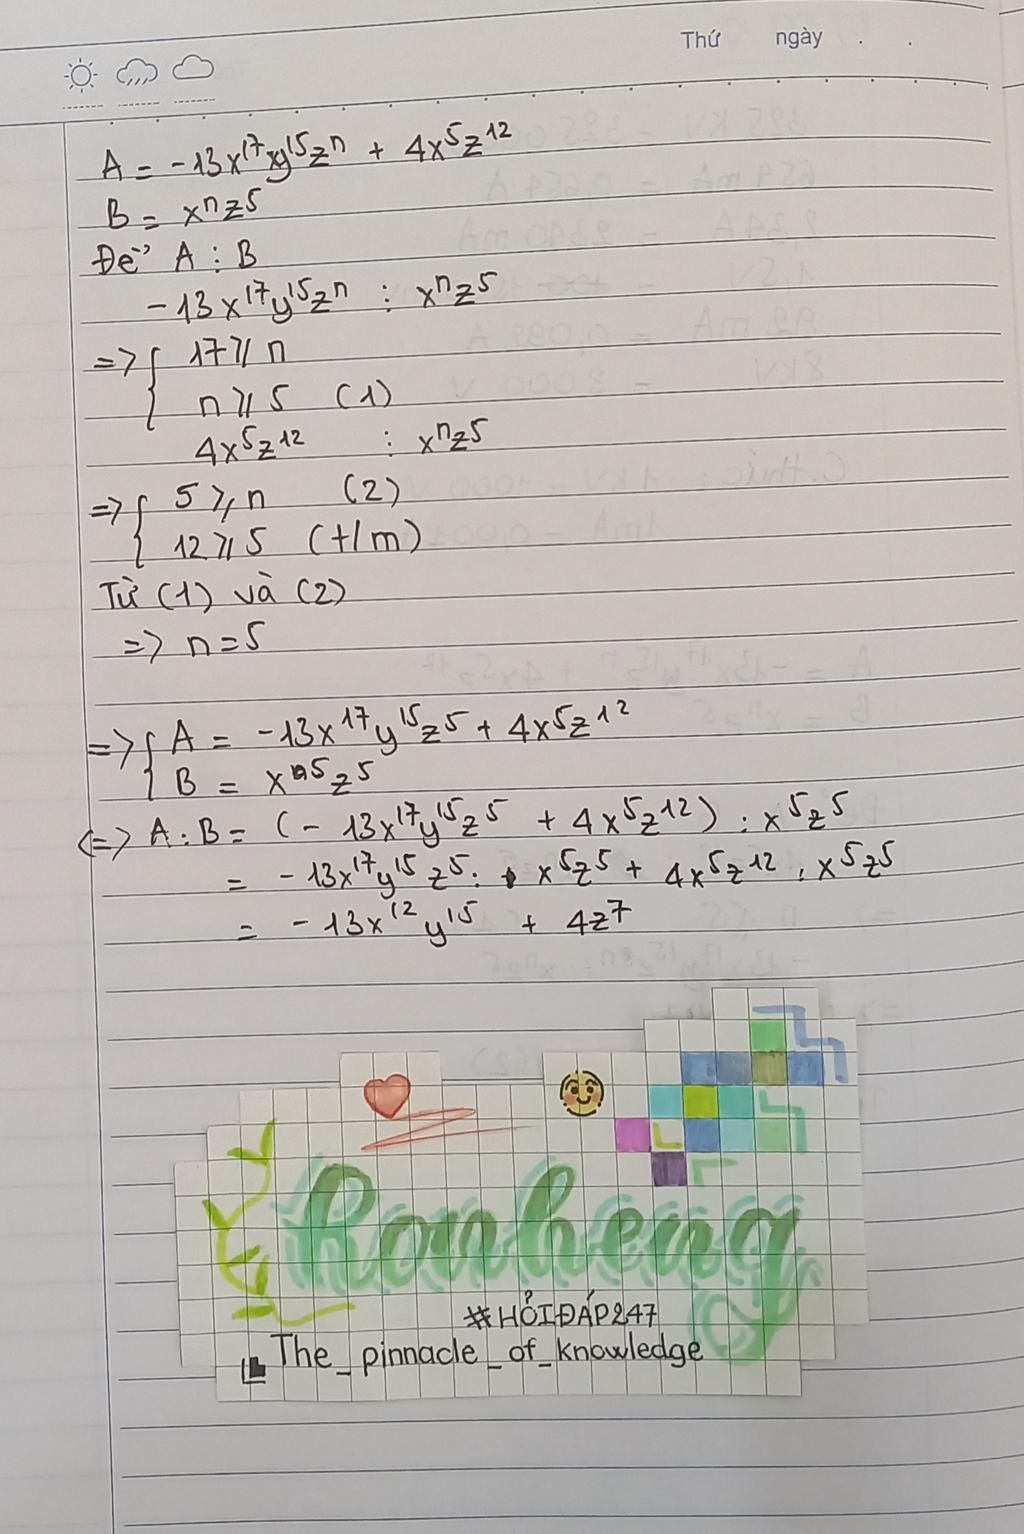 Thứ ngày . .
A = -13x¹⁷y¹⁵zⁿ + 4x⁵z¹²
B = xⁿz⁵
Để A ⋮ B
-13x¹⁷y¹⁵zⁿ ⋮ xⁿz⁵
=> { 17 ⩾ n
n ⩾ 5 (1)
4x⁵z¹² ⋮ xⁿz⁵
=> { 5 ⩾ n (2)
12 ⩾ 5 (t/m)
Từ (1) và (2)
=> n = 5
=> { A = -13x¹⁷y¹⁵z⁵ + 4x⁵z¹²
B = x⁵z⁵
<=> A : B = (-13x¹⁷y¹⁵z⁵ + 4x⁵z¹²) : x⁵z⁵
= -13x¹⁷y¹⁵z⁵ : x⁵z⁵ + 4x⁵z¹² : x⁵z⁵
= -13x¹²y¹⁵ + 4z⁷
#HỎIĐÁP247
The_pinnacle_of_knowledge